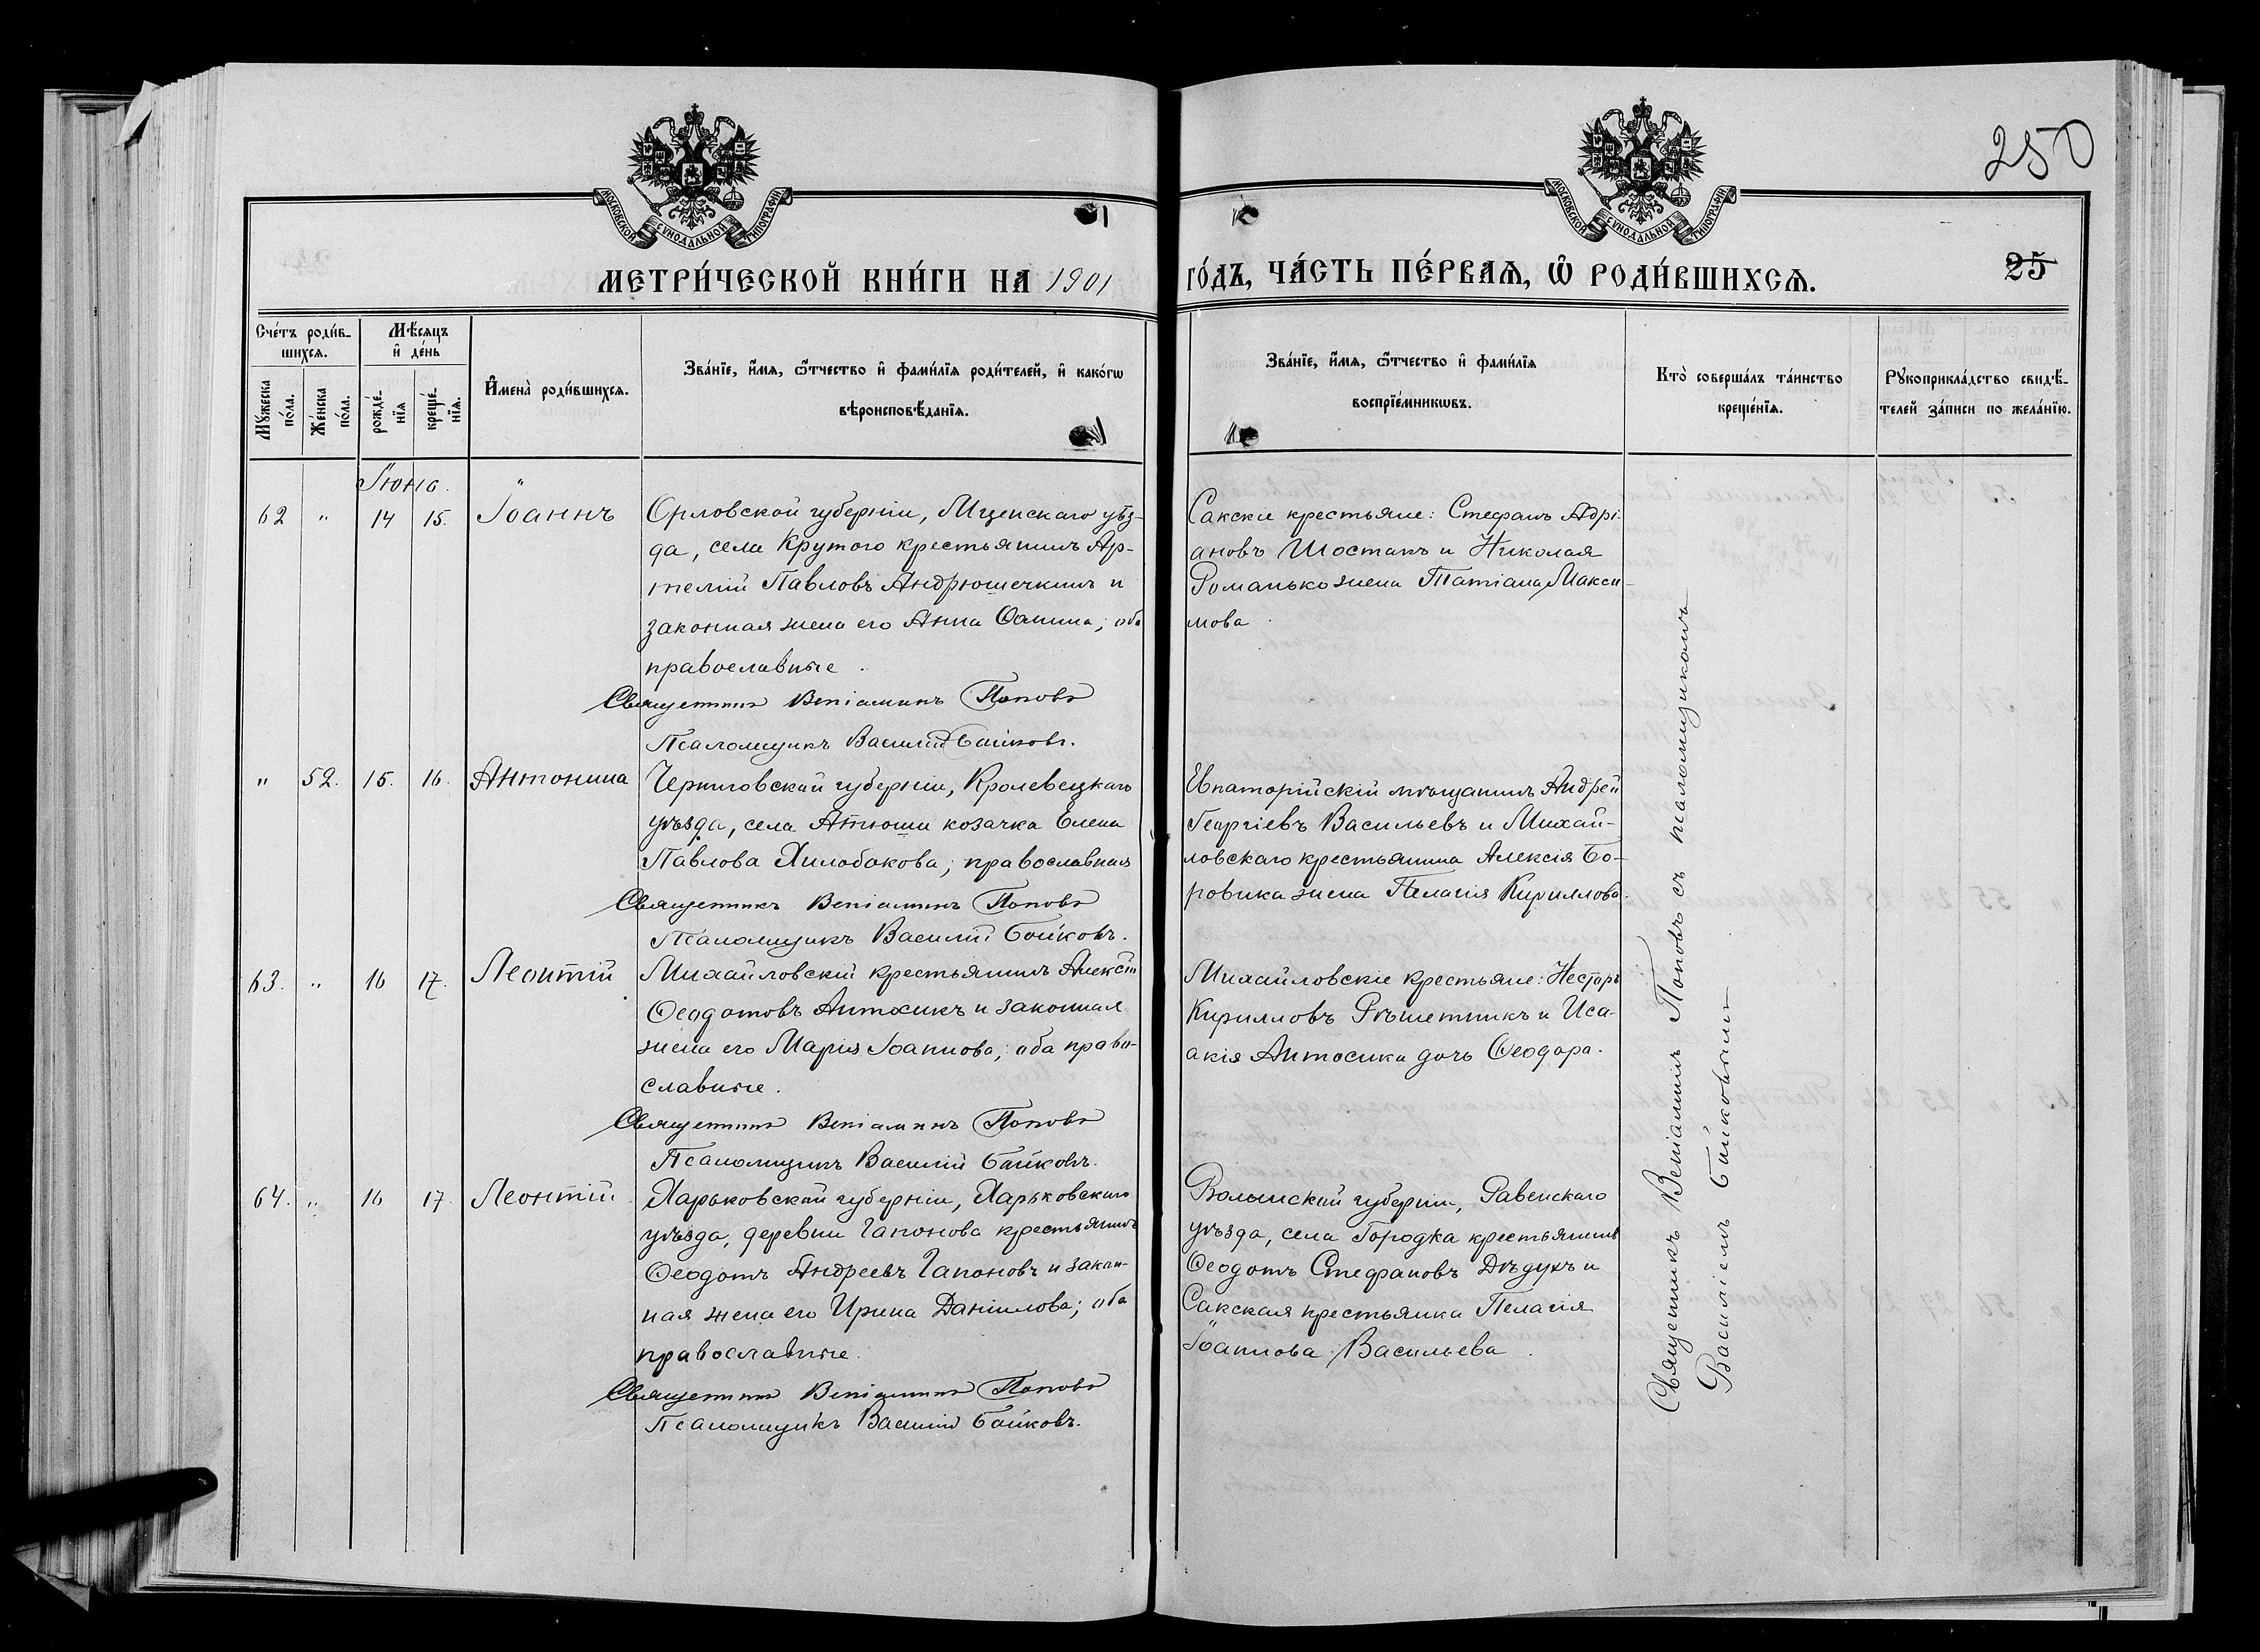 250
МОСКОВСКОЙ СѴНОДАЛЬНОЙ ТИПОГРАФІИ
МОСКОВСКОЙ СѴНОДАЛЬНОЙ ТИПОГРАФІИ
МЕТРИ́ЧЕСКОЙ КНИ́ГИ НА 1901
ГО́ДЪ, ЧА́СТЬ ПЕ́РВАѦ, Ѽ РОДИ́ВШИХСѦ.
25
Сче́тъ роди́в-
шихсѧ.
Мꙋжеска
по́ла.
Же́нска
по́ла.
Мѣ́сѧцъ
и҆ де́нь
рожде́-
нїѧ
креще́-
нїѧ.
И҆мена̀ роди́вшихсѧ.
Зва́нїе, и҆́мѧ, ѻ҆́тчество и҆ фами́лїѧ роди́телей, и҆ како́гѡ
вѣроисповѣ́данїѧ.
Зва́нїе, и҆́мѧ, ѻ҆́тчество и҆ фами́лїѧ
воспрїе́мникѡвъ.
Кто̀ соверша́лъ та́инство
креще́нїѧ.
Рꙋкоприкла́дство свидѣ́-
телей за́писи по жела́нїю.
Іюнь.
62 " 14 15. Іоаннъ
Орловской губерніи, Мценскаго уѣз-
да, села Крутого крестьянинъ Ар-
темій Павловъ Андрюшечкинъ и
законная жена его Анна Ѳомина; оба
православные.
Священникъ Веніаминъ Поповъ
Псаломщикъ Василій Байковъ.
Сакскіе крестьяне: Стефанъ Адрі-
ановъ Шостакъ и Николая
Романько жена Татіана Макси-
мова.
" 52. 15. 16. Антонина
Черниговской губерніи, Кролевецкаго
уѣзда, села Атюши козачка Елена
Павлова Хилобокова; православная
Священникъ Веніаминъ Поповъ
Псаломщикъ Василій Байковъ.
Евпаторійскій мѣщанинъ Андрей
Георгіевъ Васильевъ и Михай-
ловскаго крестьянина Алексія Бо-
ровика жена Пелагія Кириллова.
63. " 16 17. Леонтій
Михайловскій крестьянинъ Алексій
Ѳеодотовъ Антосикъ и законная
жена его Марія Іоаннова; оба право-
славные.
Священникъ Веніаминъ Поповъ
Псаломщикъ Василій Байковъ.
Михайловскіе крестьяне: Несторъ
Кирилловъ Рѣшетникъ и Иса-
акія Антосика дочь Ѳеодора.
64. " 16 17. Леонтій
Харьковской губерніи, Харьковскаго
уѣзда, деревни Гапонова крестьянинъ
Ѳеодотъ Андреевъ Гапоновъ и закон-
ная жена его Ирина Даніилова; оба
православные.
Священникъ Веніаминъ Поповъ
Псаломщикъ Василій Байковъ.
Волынской губерніи, Равенскаго
уѣзда, села Городка крестьянинъ
Ѳеодотъ Стефановъ Дѣдухъ и
Сакская крестьянка Пелагія
Іоаннова Васильева.
Священникъ Веніаминъ Поповъ съ псаломщикомъ
Василіемъ Байковымъ